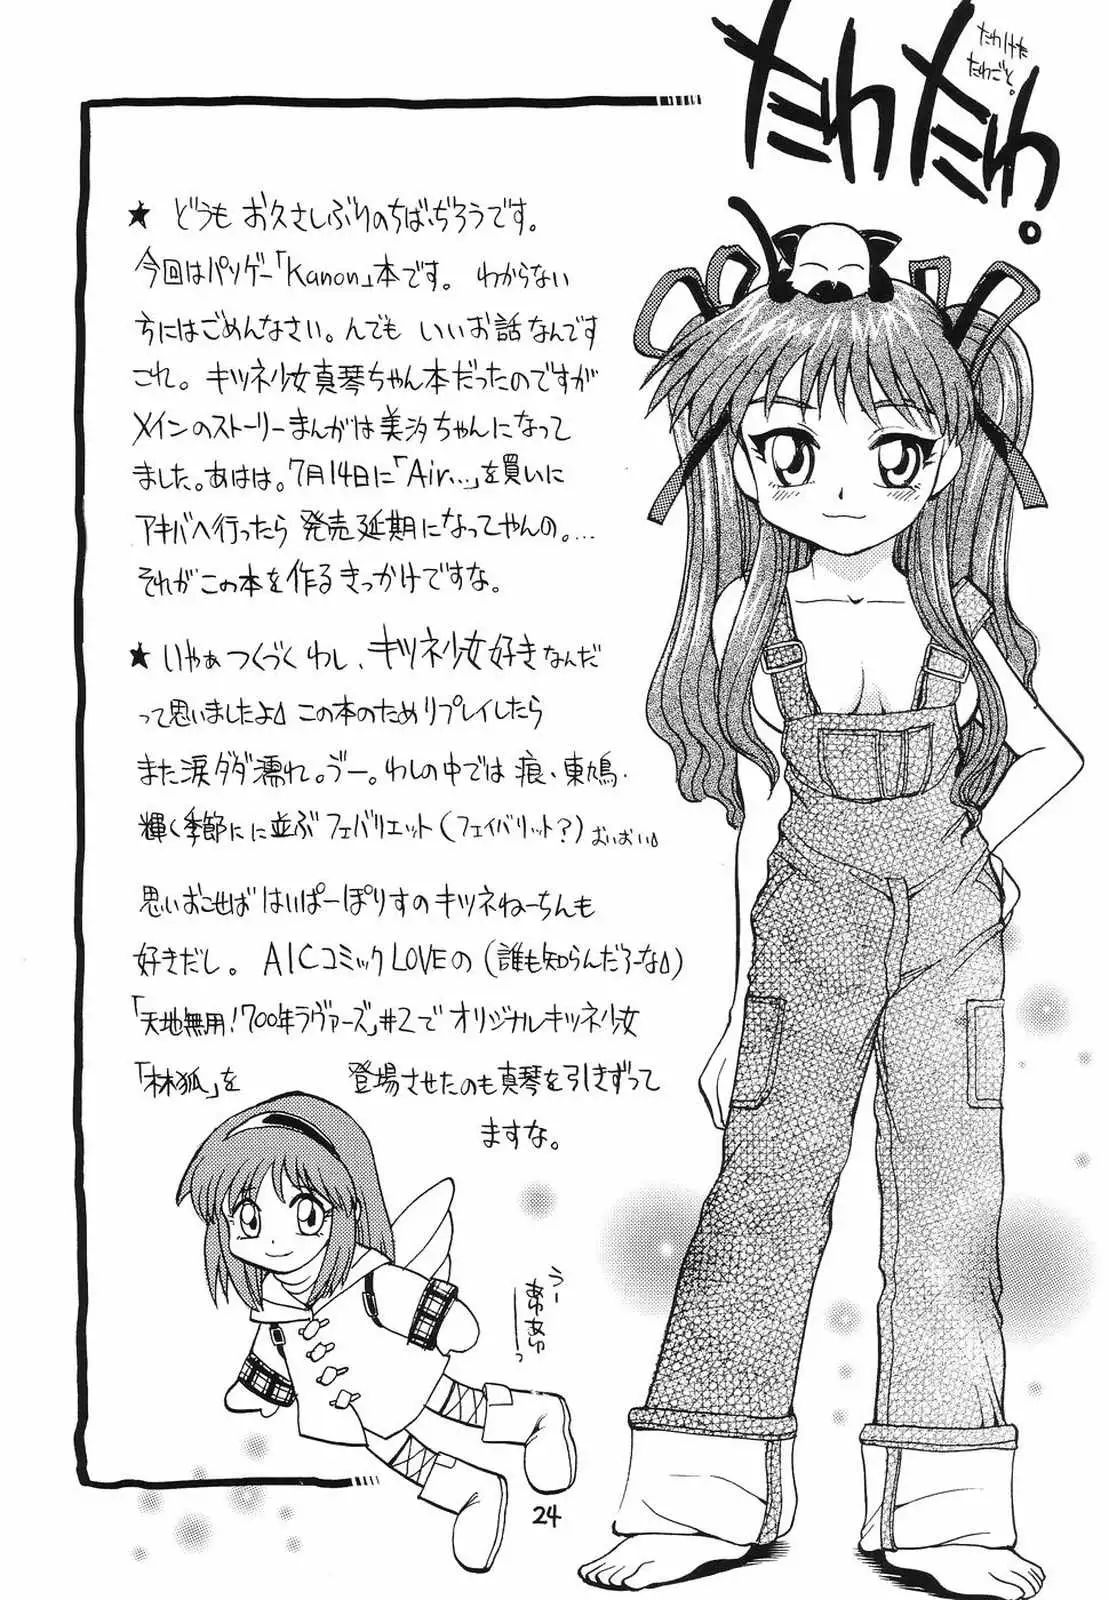 たわけた
たわごと。
たわたわ。
★ どうも お久さしぶりのちばぢろうです。
今回はパソゲー「Kanon」本です。 わからない
方にはごめんなさい。んでも いいお話なんです
これ。 キツネ少女真琴ちゃん本だったのですが
メインのストーリーまんがは美汐ちゃんになって
ました。あはは。7月14日に「Air…」を買いに
アキバへ行ったら 発売延期になってやんの。…
それがこの本を作るきっかけですな。
★ いやぁ つくづく わし、キツネ少女好きなんだ
って思いましたよ この本のためリプレイしたら
また涙ダダ濡れ。ゔー。わしの中では 痕、東鳩、
輝く季節にに並ぶ フェバリエット(フェイバリット?) おいおい
思いおこせば はいぱーぽりすの キツネねーちんも
好きだし。 AICコミックLOVEの (誰も知らんだろーな)
「天地無用!700年ラヴァーズ」#2で オリジナルキツネ少女
「林狐」を 登場させたのも真琴を引きずって
ますな。
うー
あゆあゆーっ
24